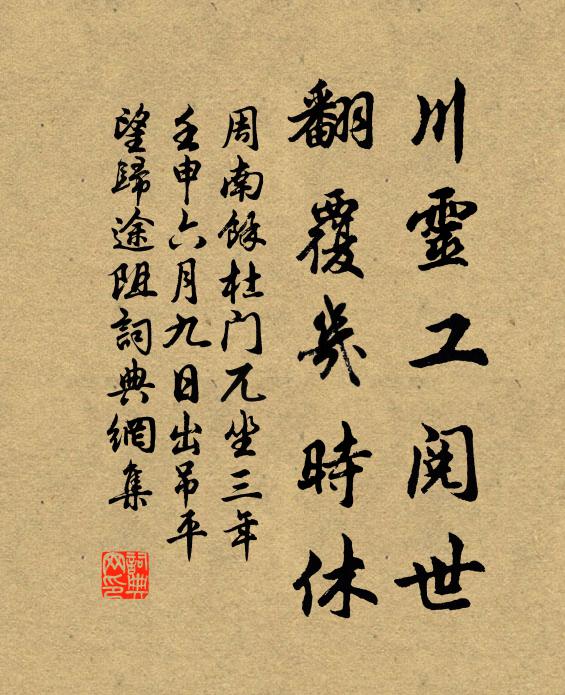 川靈工閱世
翻覆幾時休
周南餘杜门兀坐三年
壬申六月九日出吊平
望歸途阻詞典網集
詞典
网印